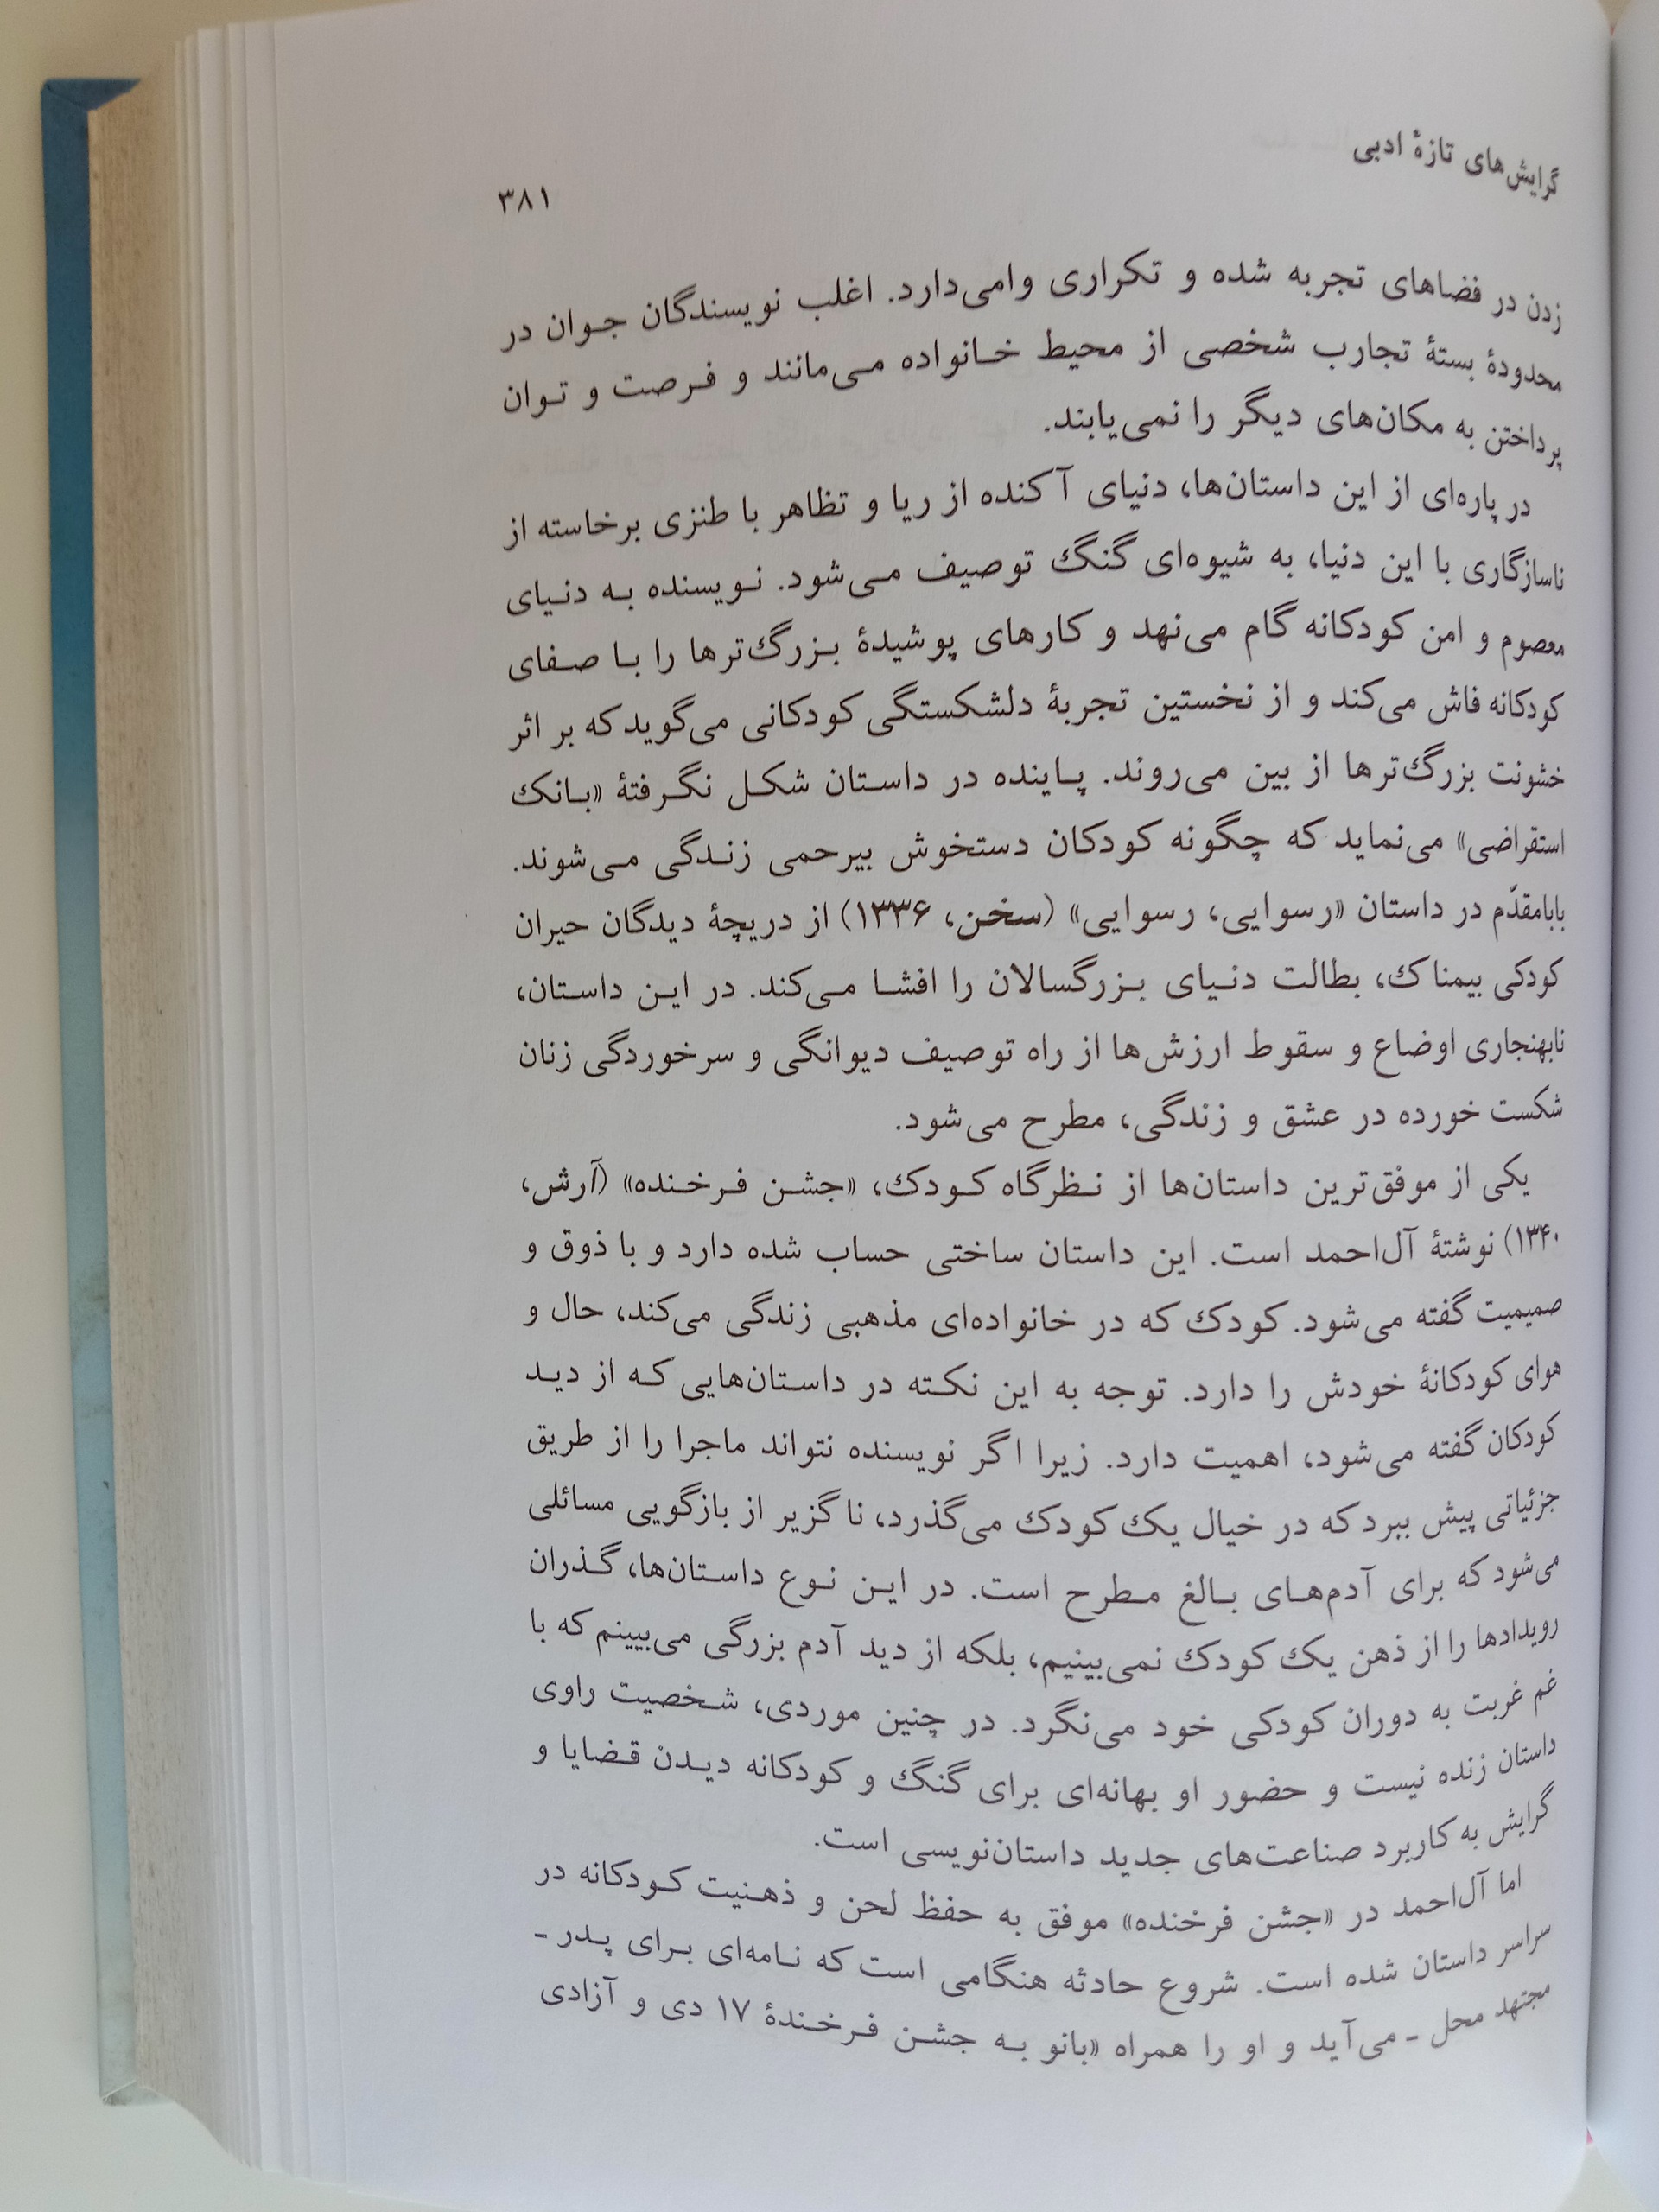 گرایش‌های تازهٔ ادبی
۳۸۱
زدن در فضاهای تجربه شده و تکراری وامی‌دارد. اغلب نویسندگان جوان در
محدودهٔ بستهٔ تجارب شخصی از محیط خانواده می‌مانند و فرصت و توان
پرداختن به مکان‌های دیگر را نمی‌یابند.
در پاره‌ای از این داستان‌ها، دنیای آکنده از ریا و تظاهر با طنزی برخاسته از
ناسازگاری با این دنیا، به شیوه‌ای گنگ توصیف می‌شود. نویسنده به دنیای
معصوم و امن کودکانه گام می‌نهد و کارهای پوشیدهٔ بزرگ‌ترها را با صفای
کودکانه فاش می‌کند و از نخستین تجربهٔ دلشکستگی کودکانی می‌گوید که بر اثر
خشونت بزرگ‌ترها از بین می‌روند. پاینده در داستان شکل نگرفتهٔ «بانک
استقراضی» می‌نماید که چگونه کودکان دستخوش بیرحمی زندگی می‌شوند.
بابامقدّم در داستان «رسوایی، رسوایی» (سخن، ۱۳۳۶) از دریچهٔ دیدگان حیران
کودکی بیمناک، بطالت دنیای بزرگسالان را افشا می‌کند. در این داستان،
نابهنجاری اوضاع و سقوط ارزش‌ها از راه توصیف دیوانگی و سرخوردگی زنان
شکست خورده در عشق و زندگی، مطرح می‌شود.
یکی از موفق‌ترین داستان‌ها از نظرگاه کودک، «جشن فرخنده» (آرش،
۱۳۴۰) نوشتهٔ آل‌احمد است. این داستان ساختی حساب شده دارد و با ذوق و
صمیمیت گفته می‌شود. کودک که در خانواده‌ای مذهبی زندگی می‌کند، حال و
هوای کودکانهٔ خودش را دارد. توجه به این نکته در داستان‌هایی که از دید
کودکان گفته می‌شود، اهمیت دارد. زیرا اگر نویسنده نتواند ماجرا را از طریق
جزئیاتی پیش ببرد که در خیال یک کودک می‌گذرد، ناگزیر از بازگویی مسائلی
می‌شود که برای آدم‌های بالغ مطرح است. در این نوع داستان‌ها، گذران
رویدادها را از ذهن یک کودک نمی‌بینیم، بلکه از دید آدم بزرگی می‌بیینم که با
غم غربت به دوران کودکی خود می‌نگرد. در چنین موردی، شخصیت راوی
داستان زنده نیست و حضور او بهانه‌ای برای گنگ و کودکانه دیدن قضایا و
گرایش به کاربرد صناعت‌های جدید داستان‌نویسی است.
اما آل‌احمد در «جشن فرخنده» موفق به حفظ لحن و ذهنیت کودکانه در
سراسر داستان شده است. شروع حادثه هنگامی است که نامه‌ای برای پدر ـ
مجتهد محل ـ می‌آید و او را همراه «بانو به جشن فرخندهٔ ۱۷ دی و آزادی